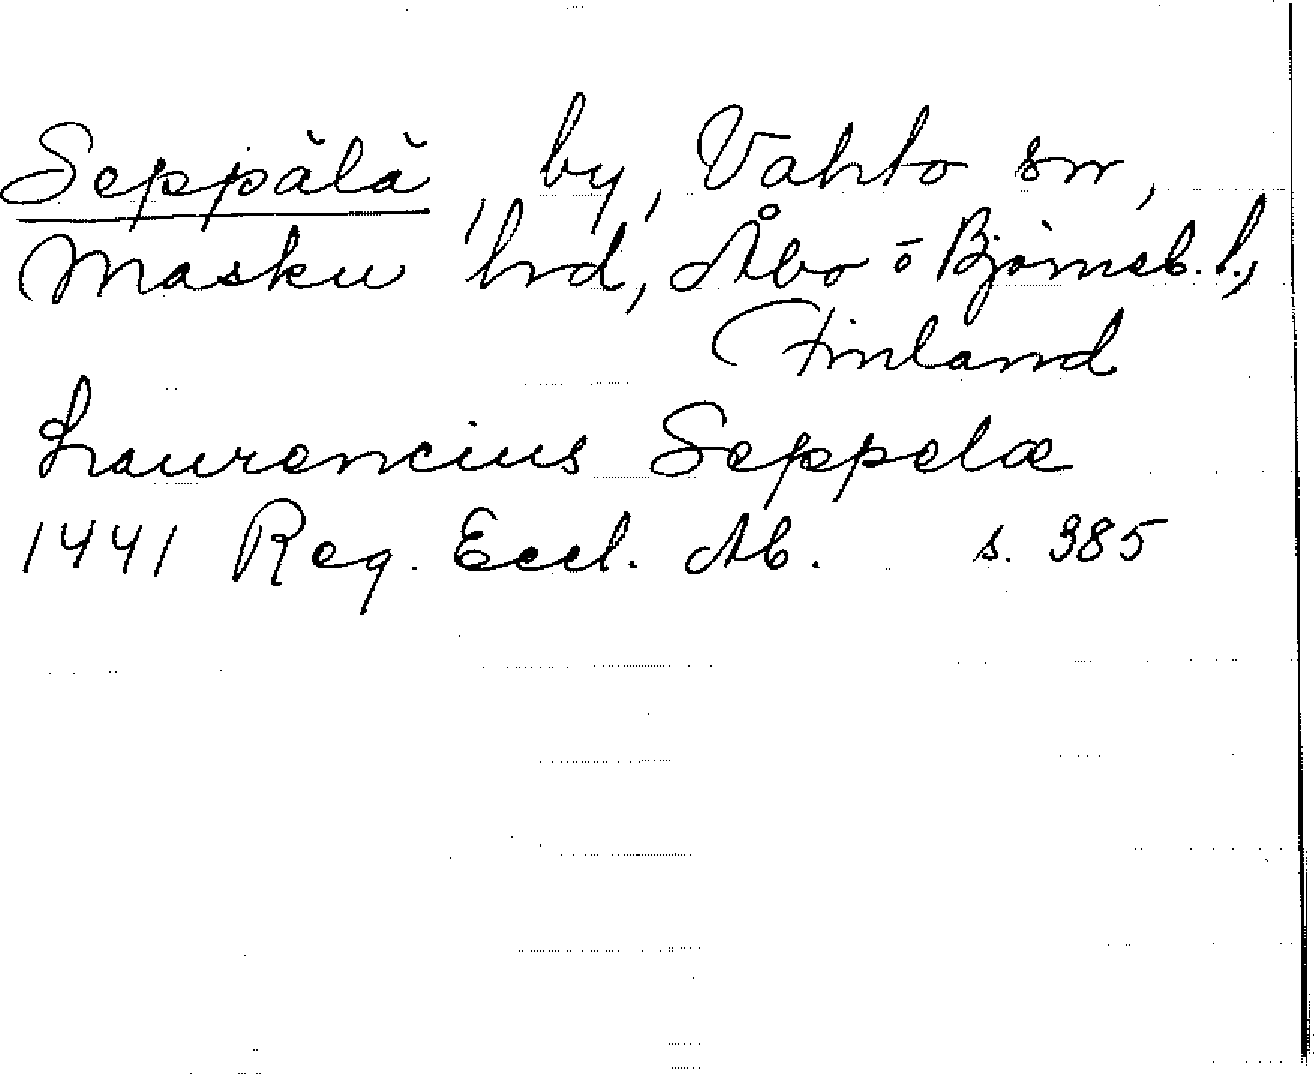 Seppälä, by, Vahto sn,
Masku hd, Åbo o Björneb. l.,
Finland
Laurencius Seppelæ
1441 Reg. Eccl. Ab. s. 385